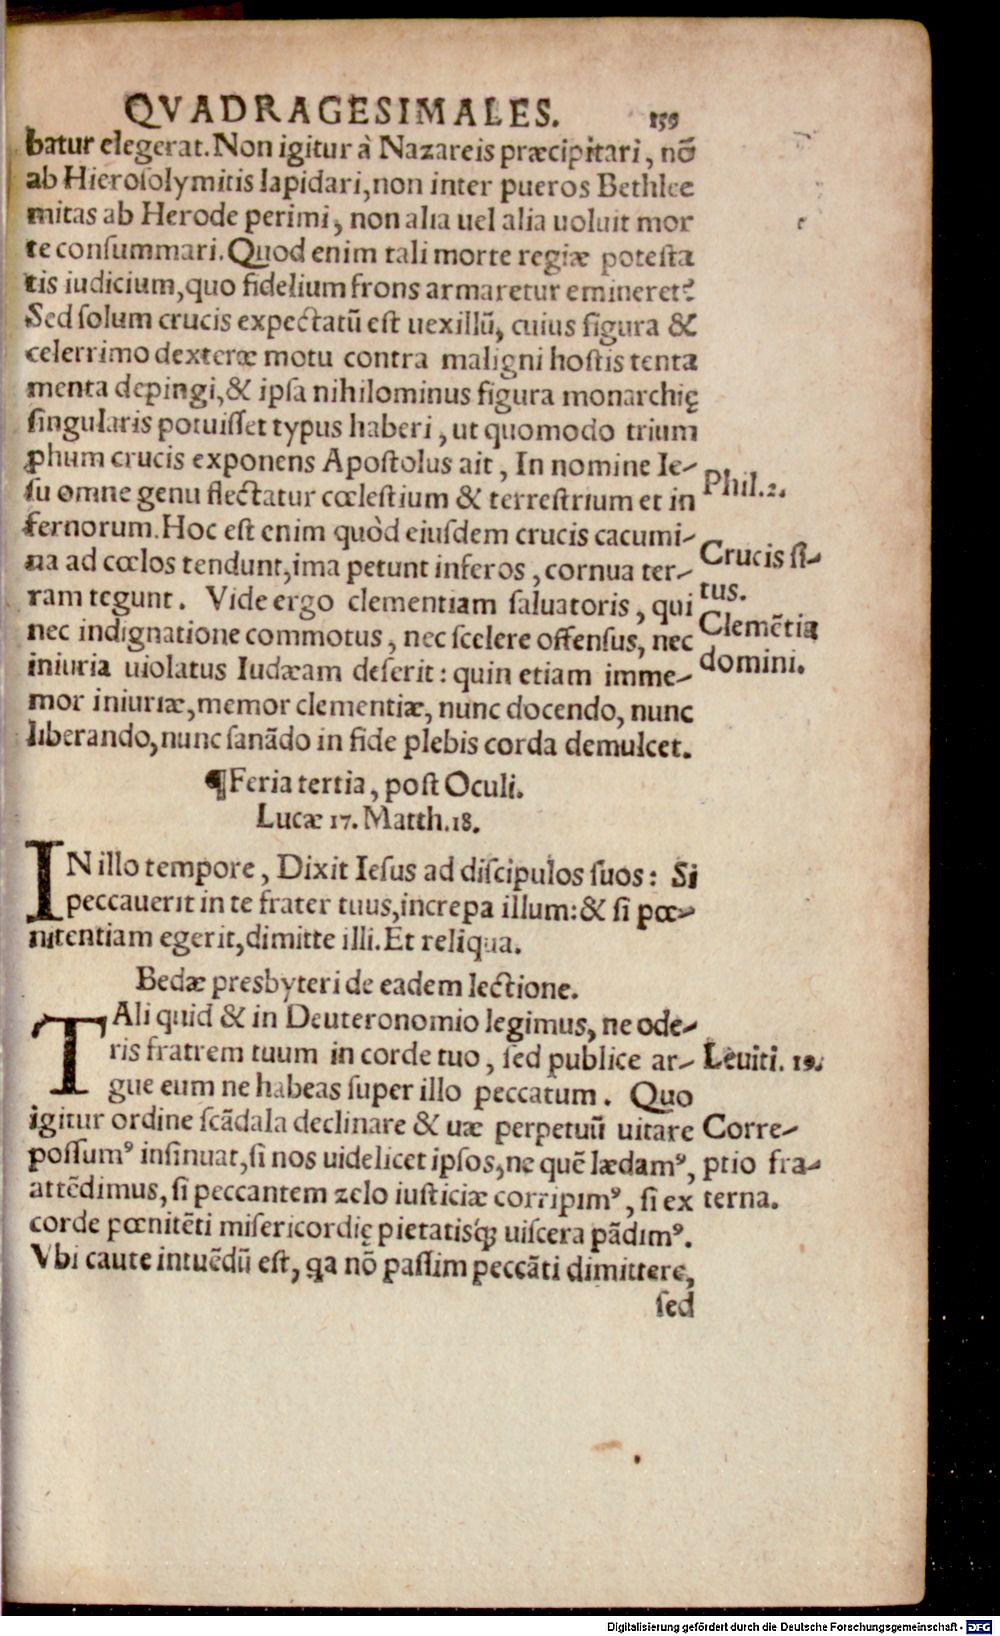 QVADRAGESIMALES. 159
batur elegerat. Non igitur à Nazareis præcipitari, nō
ab Hierosolymitis lapidari, non inter pueros Bethlee
mitas ab Herode perimi, non alia uel alia uoluit mor
te consummari. Quod enim tali morte regiæ potesta
tis iudicium, quo fidelium frons armaretur emineret?
Sed solum crucis expectatū est uexillū, cuius figura &
celerrimo dexteræ motu contra maligni hostis tenta
menta depingi, & ipsa nihilominus figura monarchię
singularis potuisset typus haberi, ut quomodo trium
phum crucis exponens Apostolus ait, In nomine Ie-
su omne genu flectatur cœlestium & terrestrium et in
Phil.2.
fernorum. Hoc est enim quòd eiusdem crucis cacumi-
na ad cœlos tendunt, ima petunt inferos, cornua ter-
ram tegunt. Vide ergo clementiam saluatoris, qui
Crucis si-
tus.
nec indignatione commotus, nec scelere offensus, nec
iniuria uiolatus Iudæam deserit: quin etiam imme-
Clemētia
domini.
mor iniuriæ, memor clementiæ, nunc docendo, nunc
liberando, nunc sanādo in fide plebis corda demulcet.
¶Feria tertia, post Oculi.
Lucæ 17. Matth.18.
IN illo tempore, Dixit Iesus ad discipulos suos: Si
peccauerit in te frater tuus, increpa illum: & si pœ-
nitentiam egerit, dimitte illi. Et reliqua.
Bedæ presbyteri de eadem lectione.
TAli quid & in Deuteronomio legimus, ne ode-
ris fratrem tuum in corde tuo, sed publice ar-
Leuiti. 19.
gue eum ne habeas super illo peccatum. Quo
igitur ordine scādala declinare & uæ perpetuū uitare
possumꝰ insinuat, si nos uidelicet ipsos, ne quē lædamꝰ,
attēdimus, si peccantem zelo iusticiæ corripimꝰ, si ex
Corre-
ptio fra-
terna.
corde pœnitēti misericordię pietatisq́ꝫ uiscera pādimꝰ.
Vbi caute intuēdū est, qa nō passim peccāti dimittere,
sed
Digitalisierung gefördert durch die Deutsche Forschungsgemeinschaft - DFG